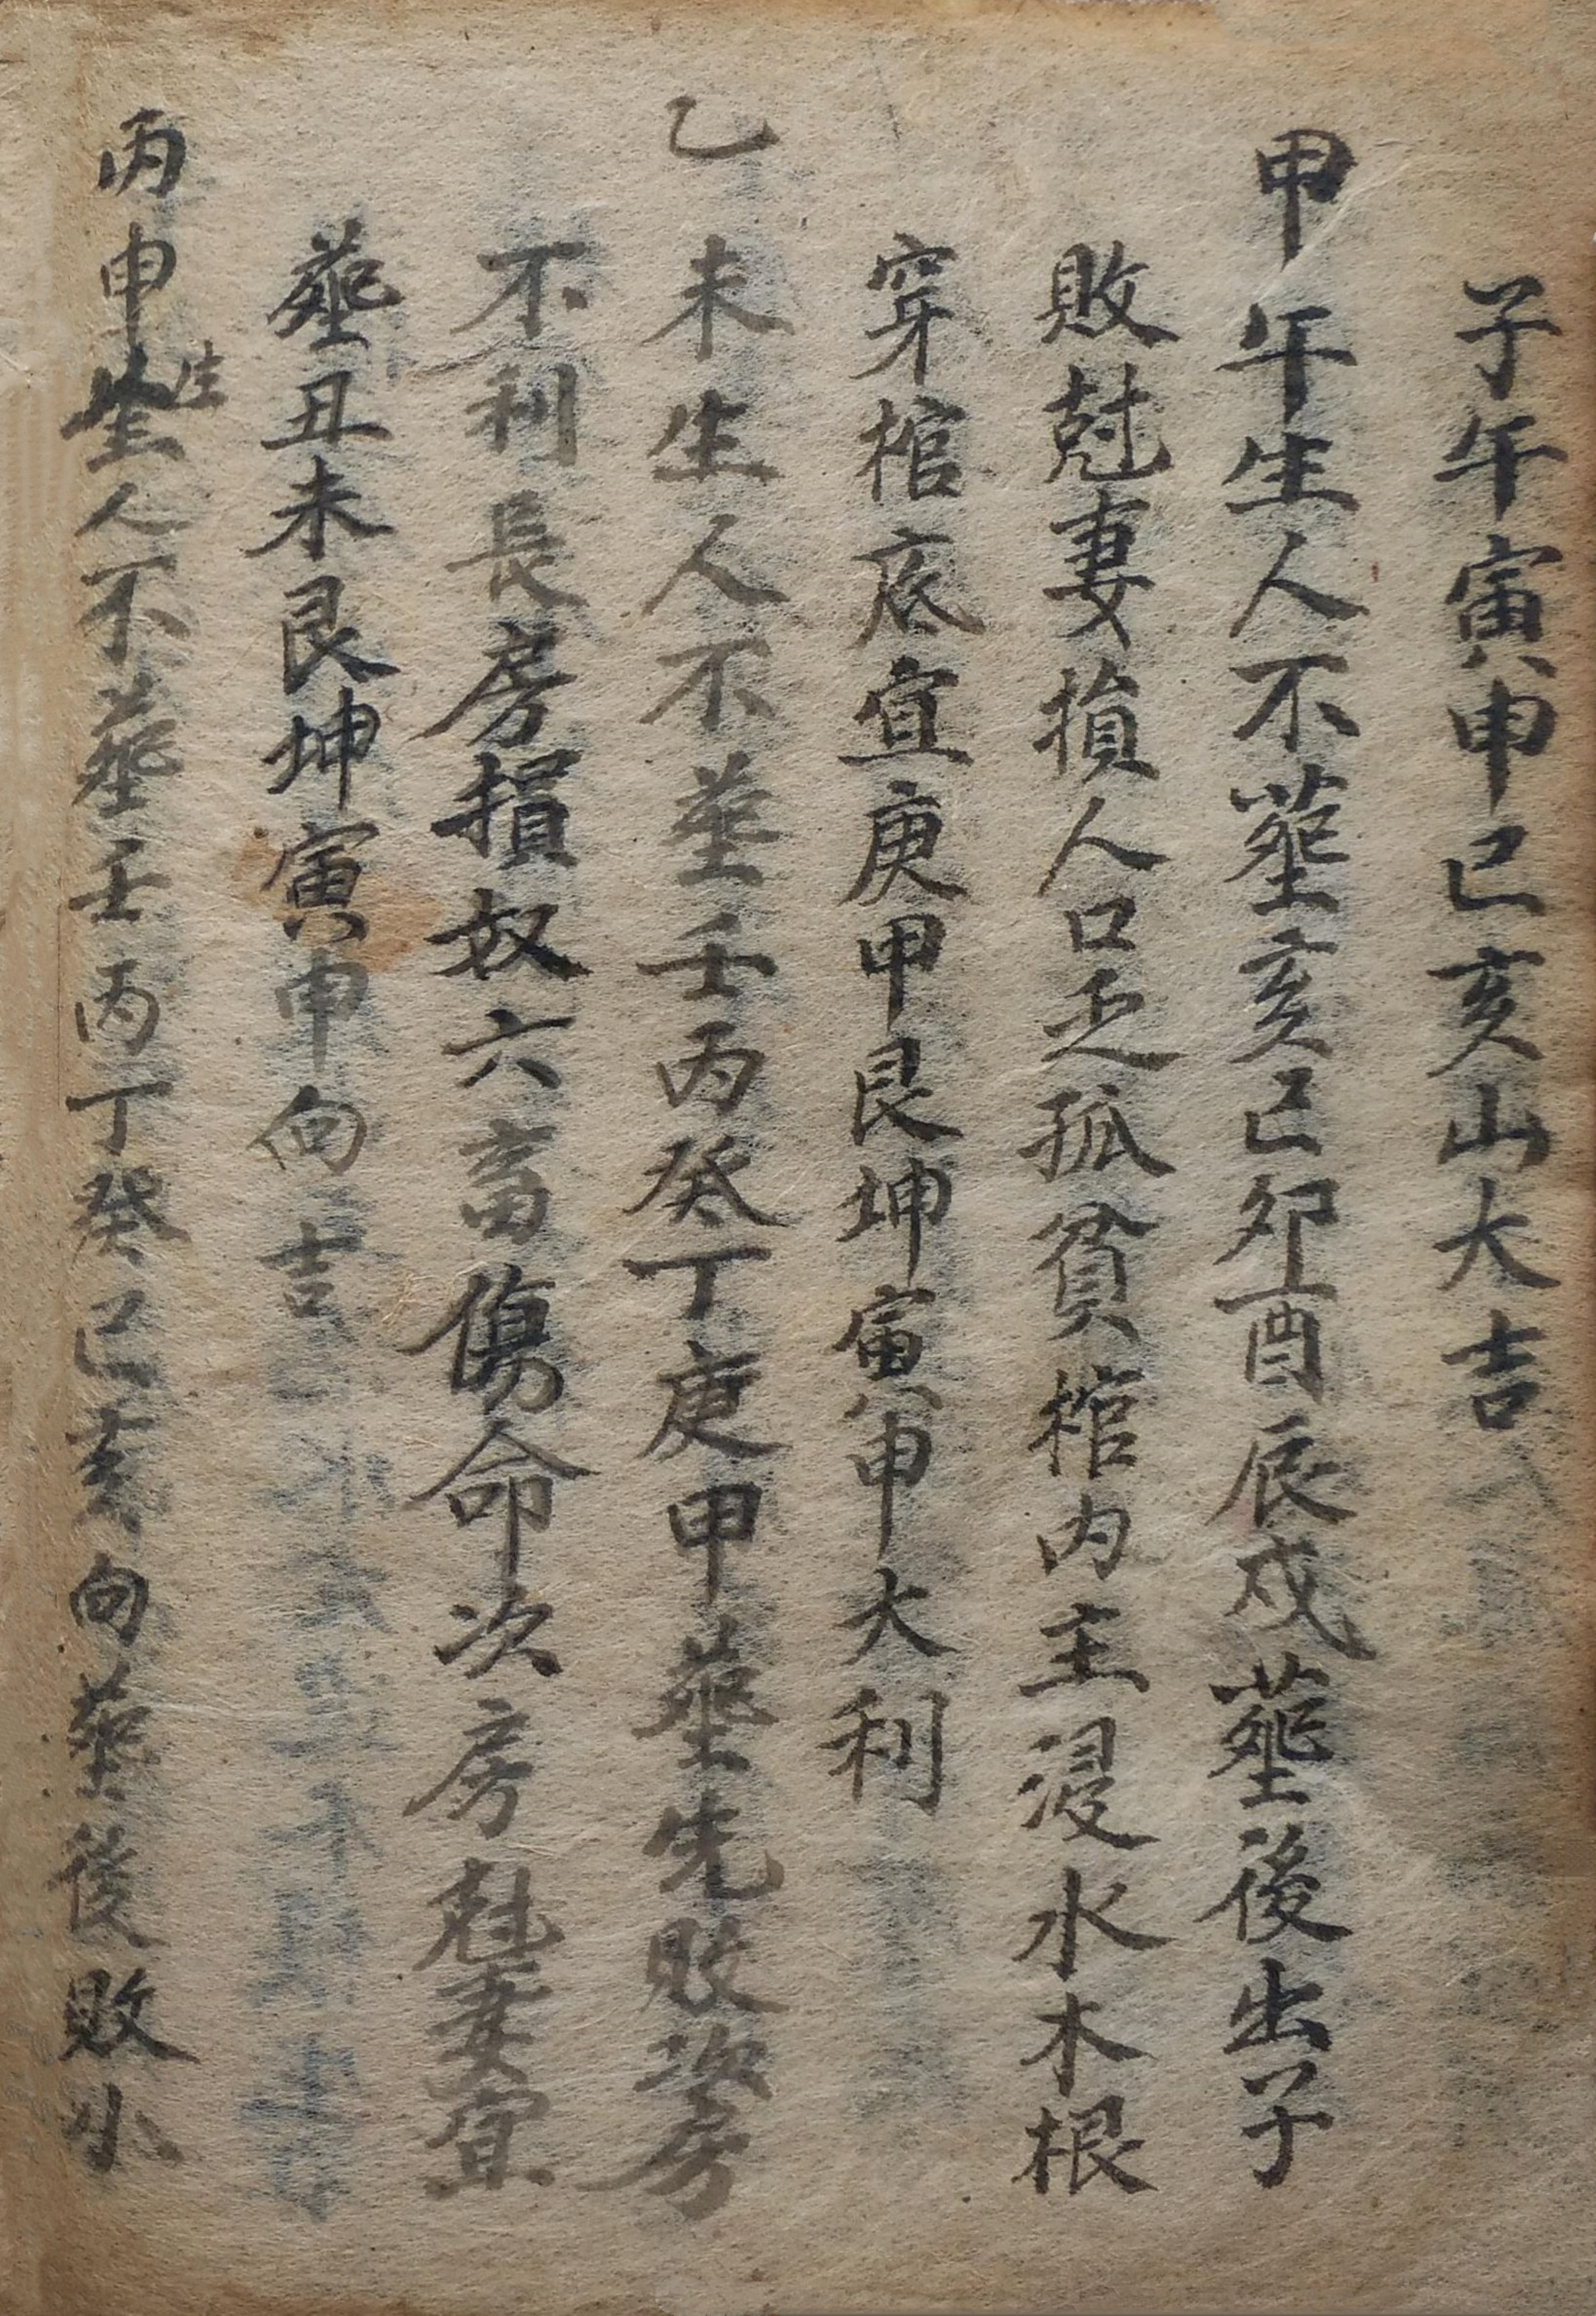 子午寅申巳亥山大吉
甲午生人不塟亥巳卯酉辰戍塟後出子
敗尅妻損人口乏孤貧棺内主浸水木根
穿棺底宜庚甲艮坤寅申大利
乙未生人不塟壬丙癸丁庚甲塟先敗次房
不利長房損奴六畜傷命次房尅妻宜
塟丑未艮坤寅申向吉
丙申生人不塟壬丙丁癸巳亥向塟後敗小